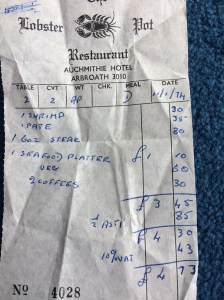 The
Lobster Pot
Restaurant
AUCHMITHIE HOTEL
ARBROATH 3010
TABLE CVT WT. CHK. MEAL DATE
2 2 D
1 SHRIMP 30
1 PATE 35
1 6oz STEAK 80
1 SEAFOOD PLATTER £1 10
VEG 60
2 COFFEES 30
£3 45
½ ASTI 85
£4 30
10% VAT 43
£4 73
Nº 4028